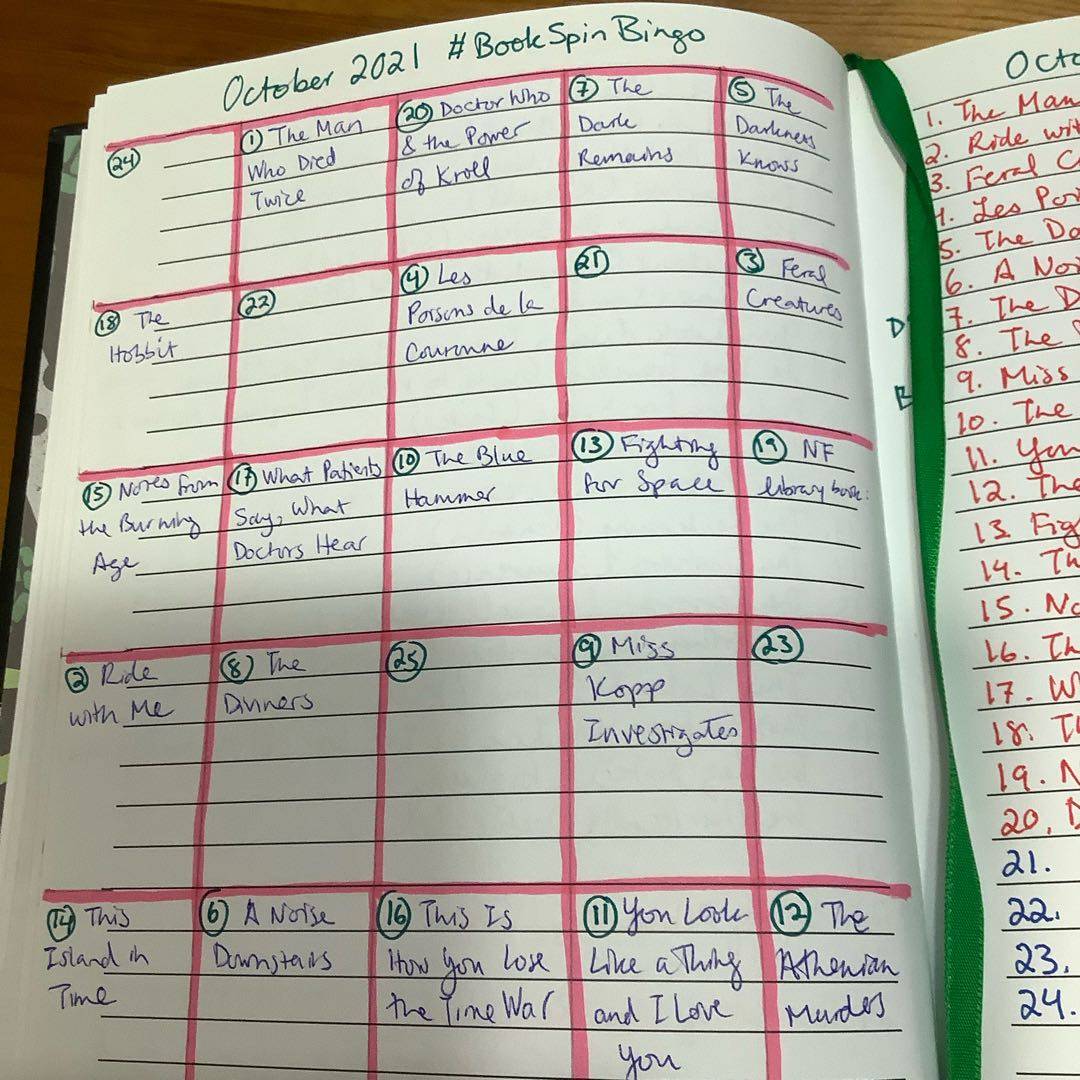 October 2021 #BookSpinBingo
24
1 The Man
Who Died
Twice
20 Doctor Who
& the Power
of Kroll
7 The
Dark
Remains
5 The
Darkness
Knows
18 The
Hobbit
22
4 Les
Poisons de la
Couronne
21
3 Feral
Creatures
15 Notes from
the Burning
Age
17 What Patients
Say, What
Doctors Hear
10 The Blue
Hammer
13 Fighting
for Space
19 NF
library book.
2 Ride
with Me
8 The
Diviners
25
9 Miss
Kopp
Investigates
23
14 This
Island in
Time
6 A Noise
Downstairs
16 This Is
How You Lose
the Time War
11 You Look
Like a Thing
and I Love
You
12 The
Athenian
Murders
Octo
1. The Man
2. Ride wit
3. Feral C
4. Les Poi
5. The Da
6. A Noi
7. The D
8. The
9. Miss
10. The
11. You
12. The
13 Fig
14. Th
15. No
16. Th
17. W
18. Th
19. N
20. D
21.
22.
23.
24.
D
B